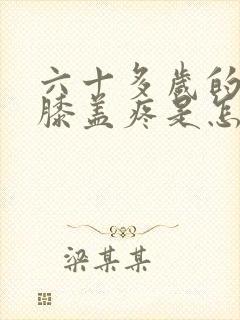 六十多岁的
膝盖疼是怎
梁某某